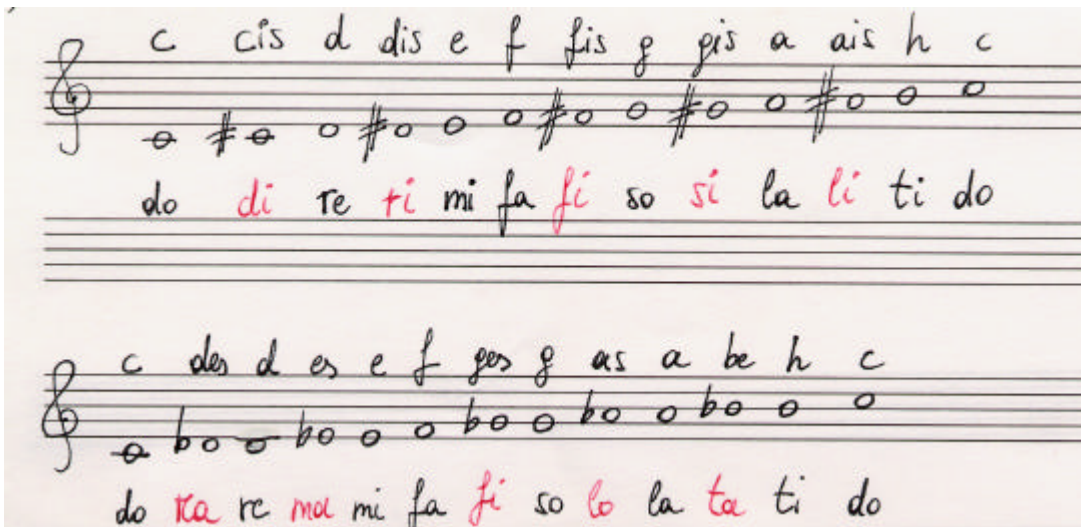 c cis d dis e f fis g gis a ais h c
do di re ri mi fa fi so si la li ti do
c des d es e f ges g as a be h c
do ra re ma mi fa fi so lo la ta ti do